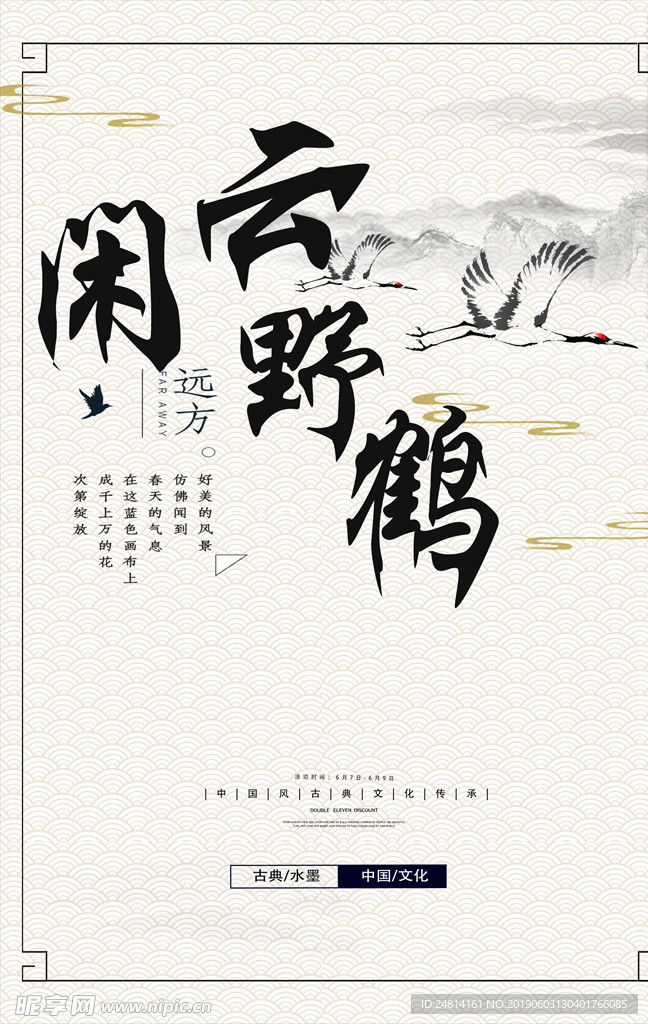 闲云野鹤
远方
FAR AWAY
好美的风景
仿佛闻到
春天的气息
在这蓝色画布上
成千上万的花
次第绽放
活动时间：6月7日-6月9日
中国风古典文化传承
DOUBLE ELEVEN DISCOUNT
古典/水墨
中国/文化
昵享网 www.nipic.cn
ID:24814161 NO.20190603130401766085